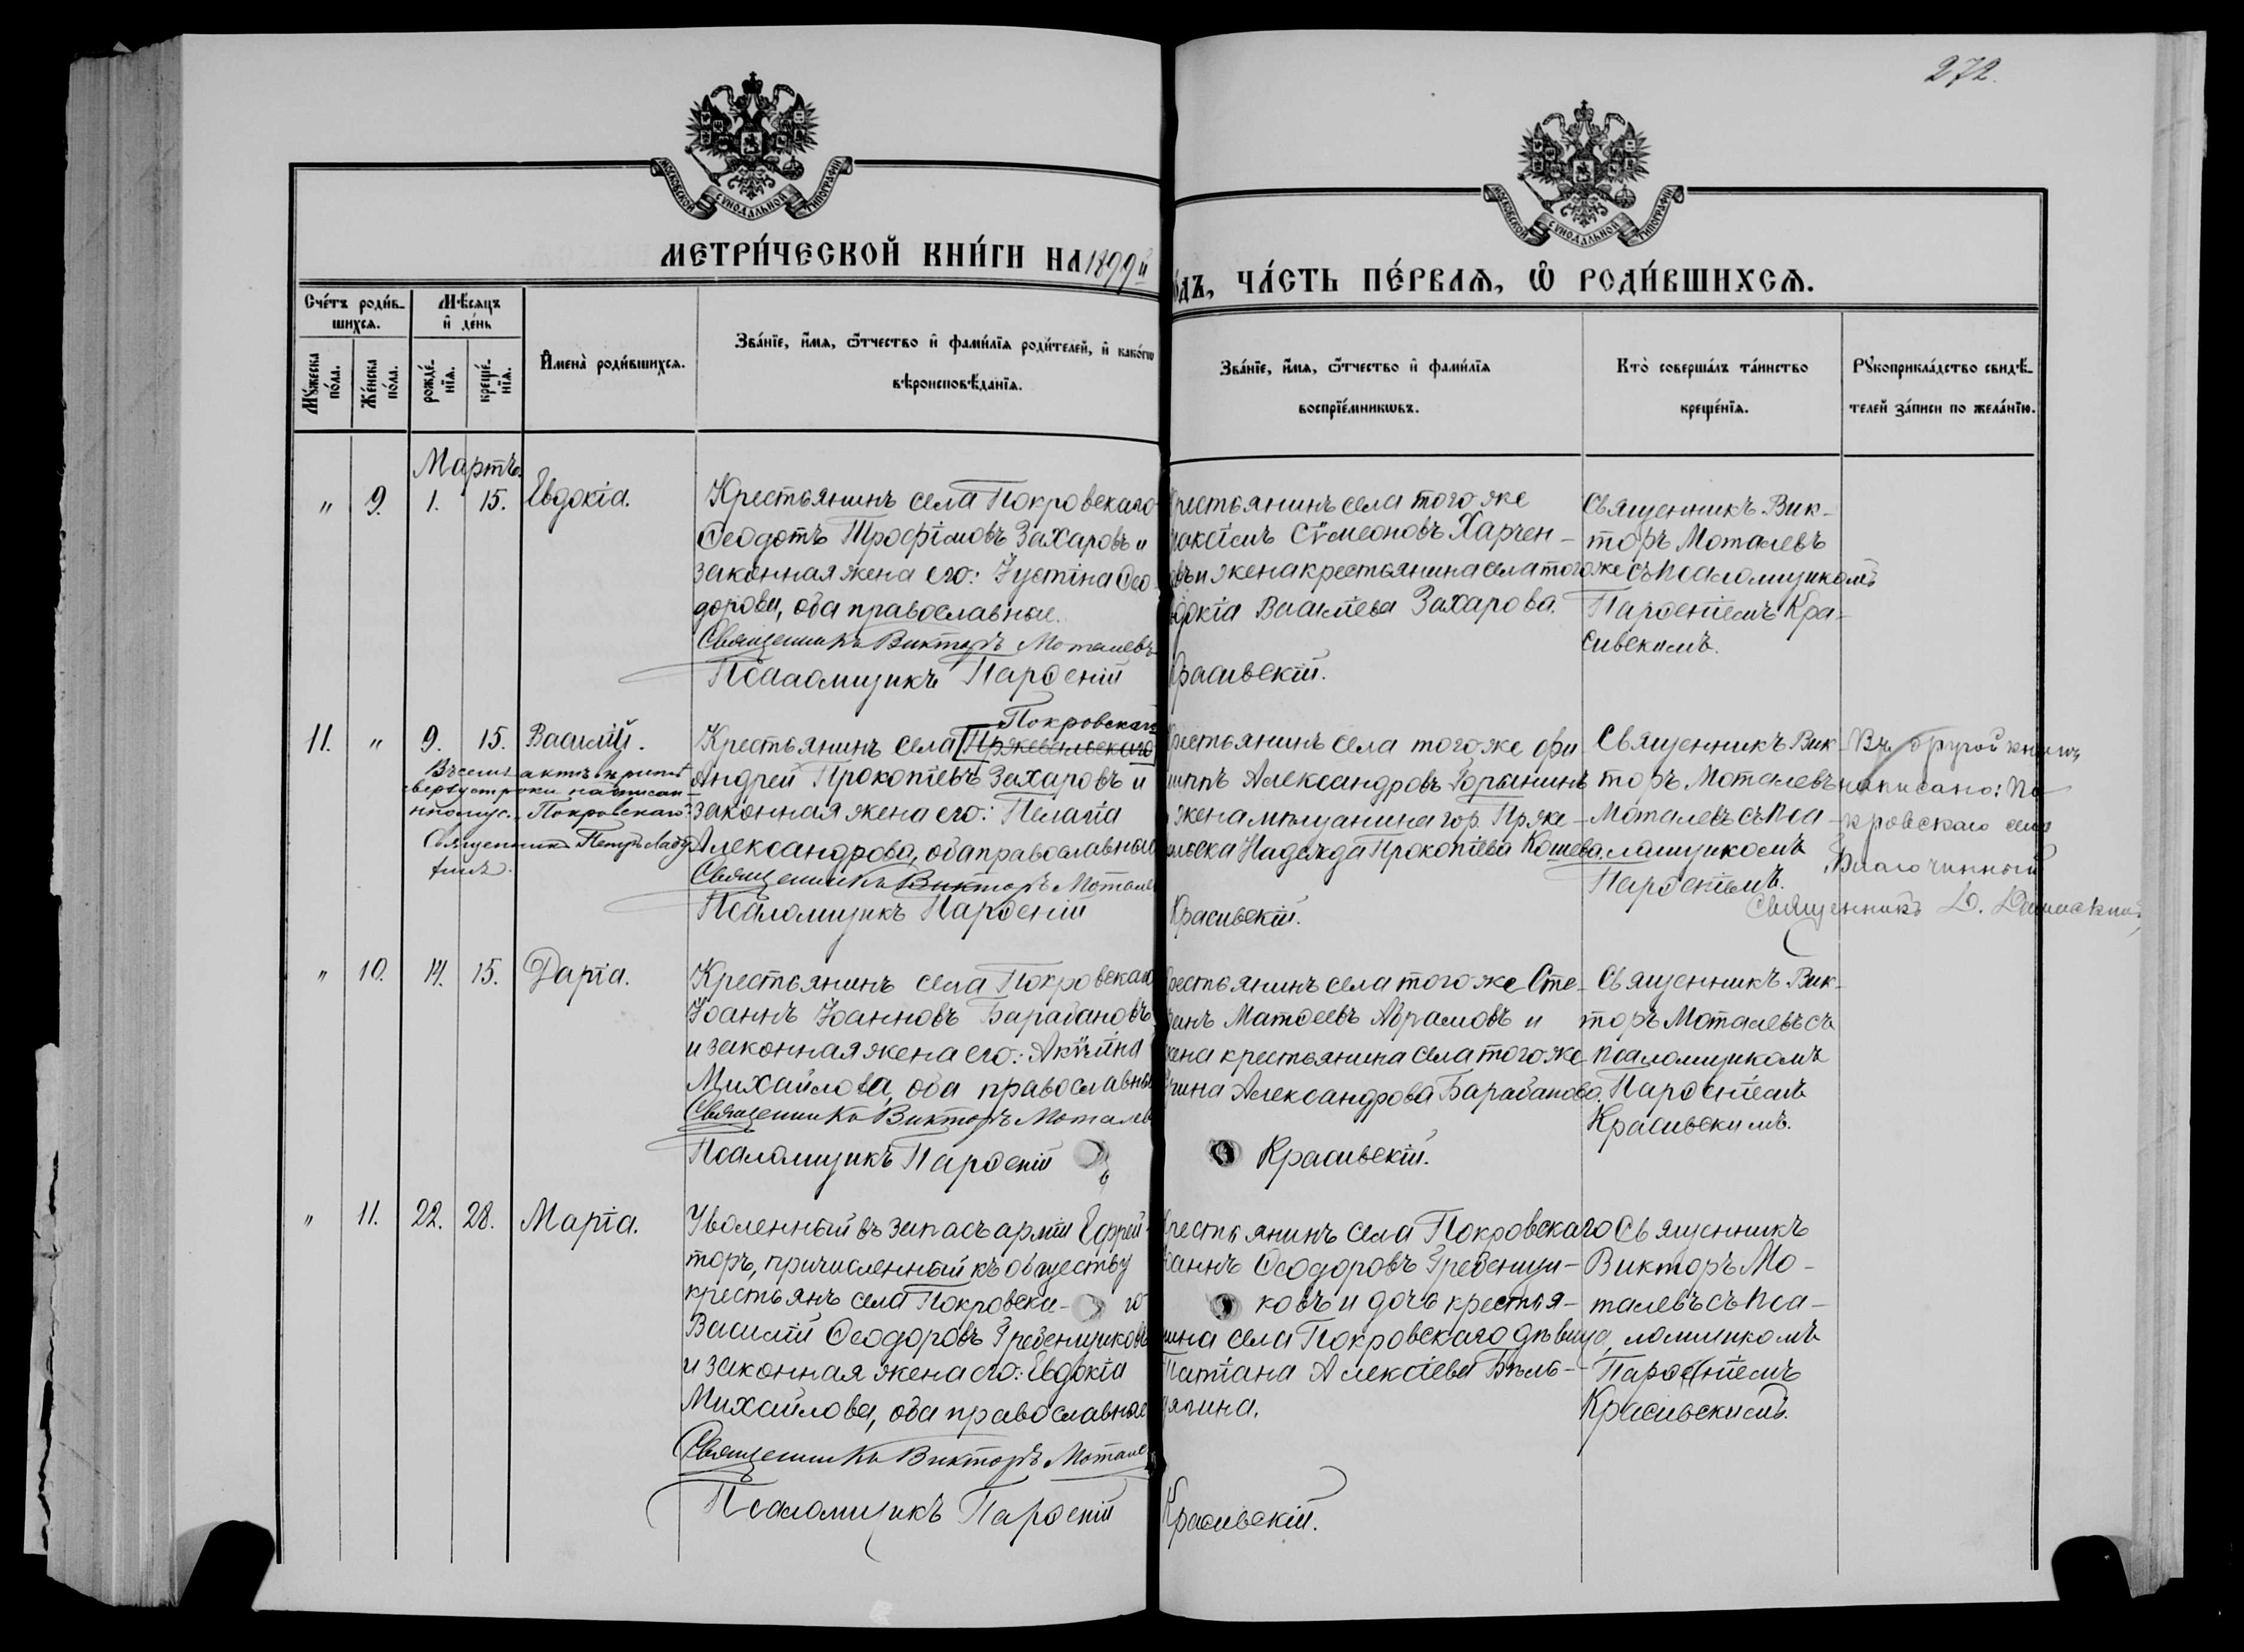 272.
МОСКОВСКОЙ СѴНОДАЛЬНОЙ ТИПОГРАФІИ
МОСКОВСКОЙ СѴНОДАЛЬНОЙ ТИПОГРАФІИ
МЕТРИ́ЧЕСКОЙ КНИ́ГИ НА 1899й
ЧА́СТЬ ПЕ́РВАѦ, Ѽ РОДИ́ВШИХСѦ.
Сче́тъ роди́в-
шихсѧ.
Мꙋ́жеска
по́ла.
Же́нска
по́ла.
Мѣ́сѧцъ
и҆ де́нь
рожде́-
нїѧ.
креще́-
нїѧ.
И҆мена̀ роди́вшихсѧ.
Зва́нїе, и҆́мѧ, ѻ҆́тчество и҆ фамѝлїѧ роди́телей, и҆ како́гѡ
вѣроисповѣ́данїѧ.
Зва́нїе, и҆́мѧ, ѻ҆́тчество и҆ фами́лїѧ
воспрїе́мникѡвъ.
Кто̀ соверша́лъ та́инство
креще́нїѧ.
Рꙋкоприкла́дство свидѣ́-
телей за́писи по жела́нїю.
Мартъ.
" 9. 1. 15. Евдокіа.
Крестьянинъ села Покровскаго
Ѳеодотъ Трофімовъ Захаровъ и
законная жена его: Іустіна Ѳео-
дорова, оба православные.
Священникъ Викторъ Моталевъ
Псаломщикъ Парѳеній
крестьянинъ села того же
Сѵмеоновъ Харчен-
и жена крестьянина села того же
Василіева Захарова.
Красивскій.
Священникъ Вик-
торъ Моталевъ
съ псаломщикомъ
Парѳеніемъ Кра-
сивскимъ.
11. " 9. 15. Василій.
Въ семъ актѣ
сверхъ строки написан-
ному: Покровскаго
Священникъ Петръ
Покровскаго
Крестьянинъ села Пржевальскаго
Андрей Прокопіевъ Захаровъ и
законная жена его: Пелагіа
Александрова, оба православные
Священникъ Викторъ Моталевъ
Псаломщикъ Парѳеній
крестьянинъ села того же Фи
липпъ Александровъ Горынинъ
жена мѣщанина гор. Прже-
вальска Надежда Прокопіева Кошева.
Красивскій.
Священникъ Вик-
торъ Моталевъ
Моталевъ съ пса-
ломщикомъ
Парѳеніемъ.
Въ другой книгѣ
написано: По-
кровскаго села
Благочинный
Священникъ
" 10. 14. 15. Даріа.
Крестьянинъ села Покровскаго
Іоаннъ Іоанновъ Барабановъ
и законная жена его: Акѵлина
Михайлова, оба православные
Священникъ Викторъ Моталевъ
Псаломщикъ Парѳеній
крестьянинъ села того же Сте-
фанъ Матѳеевъ Абрамовъ и
жена крестьянина села того же
Александрова Барабанова.
Красивскій.
Священникъ Вик-
торъ Моталевъ съ
псаломщикомъ
Парѳеніемъ
Красивскимъ.
" 11. 22. 28. Маріа.
Уволенный въ запасъ арміи Ефрей-
торъ, причисленный къ обществу
крестьянъ села Покровска-го
Василій Ѳеодоровъ Гребенщиковъ
и законная жена его: Евдокіа
Михайлова, оба православные
Священникъ Викторъ Моталевъ
Псаломщикъ Парѳеній
крестьянинъ села Покровскаго
Іоаннъ Ѳеодоровъ Гребенщи-
ковъ и дочь крестья-
нина села Покровскаго дѣвица,
Татіана Алексіева Бѣль-
Красивскій.
Священникъ
Викторъ Мо-
талевъ съ пса-
ломщикомъ
Парѳеніемъ
Красивскимъ.